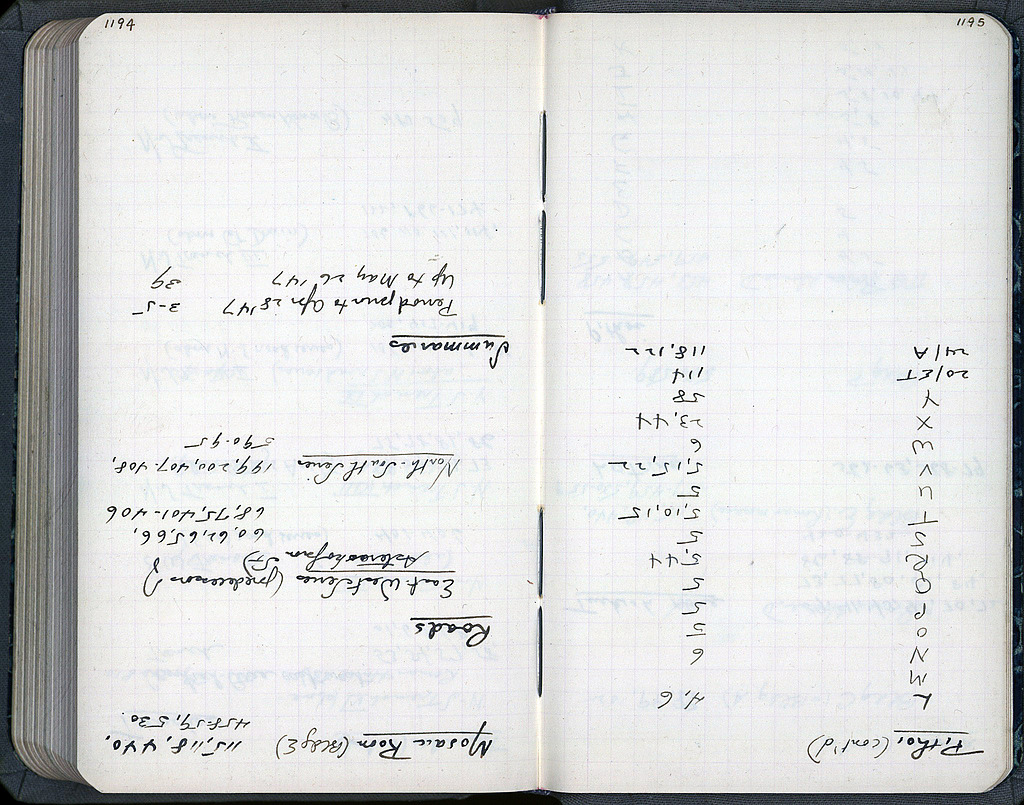 1195
Pithoi (cont'd)
L 4,6
M
N 6
O 5
P 5
Q 5
R 5,44
S 5
T 5,10,15
U 5
V 5,15,22
W 6
X 23,44
Y 58
20/ET 114
24/A 118,122
1194
Mosaic Room (Bldg E) 115,118,440,
458-59, 530
Roads
East West Series (predecessors
60,62,65,66,
68,75,401-406
North-South Series 199,200,407-408,
590-95
Summaries
Period prior to Apr 28 '47 3-5
Up to May 26 '47 39